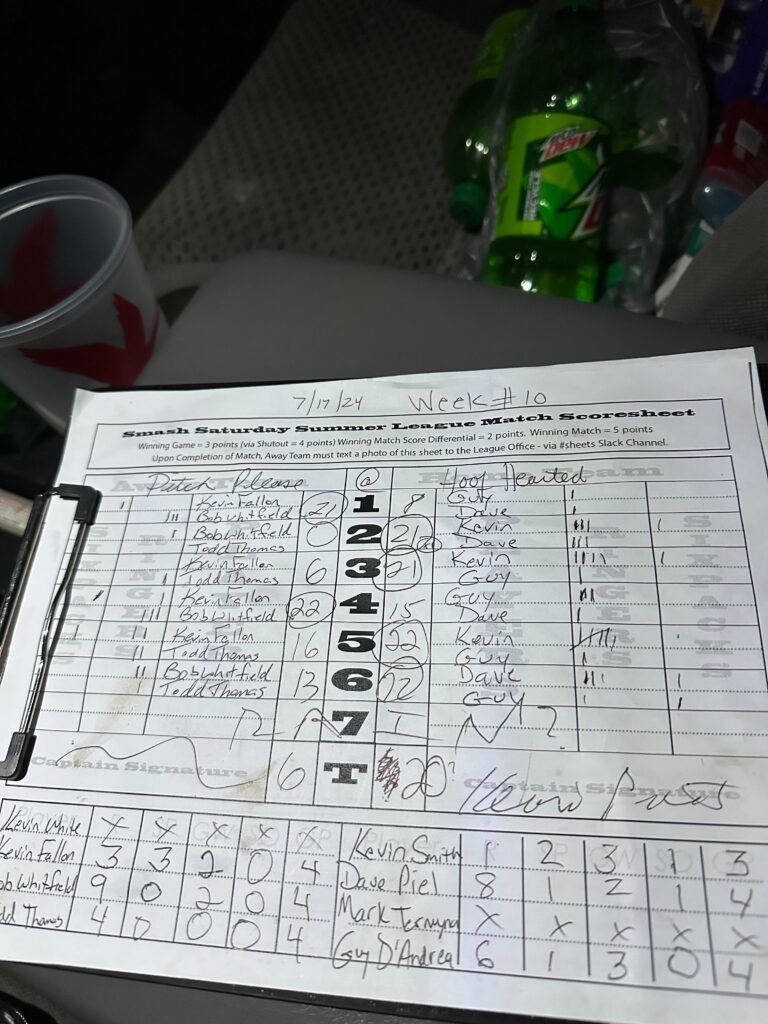 7/17/24 Week #10
Smash Saturday Summer League Match Scoresheet
Winning Game = 3 points (via Shutout = 4 points) Winning Match Score Differential = 2 points. Winning Match = 5 points
Upon Completion of Match, Away Team must text a photo of this sheet to the League Office - via #sheets Slack Channel.
@ Hoof Hearted
Kevin Fallon 21 1 8 Guy
Bob Whitfield Dave
Bob Whitfield 0 2 21 Kevin
Todd Thomas Dave
Kevin Fallon 6 3 21 Kevin
Todd Thomas Guy
Kevin Fallon 22 4 15 Guy
Bob Whitfield Dave
Kevin Fallon 16 5 22 Kevin
Todd Thomas Guy
Bob Whitfield 13 6 22 Dave
Todd Thomas Guy
R A 7 I N ?
Captain Signature 6 T 20 Captain Signature
Kevin White X X X X X Kevin Smith 2 3 1 3
Kevin Fallon 3 3 2 0 4 Dave Piel 8 1 2 1 4
ob Whitfield 9 0 2 0 4 Mark X X X X X
dd Thomas 4 0 0 0 4 Guy D'Andrea 6 1 3 0 4